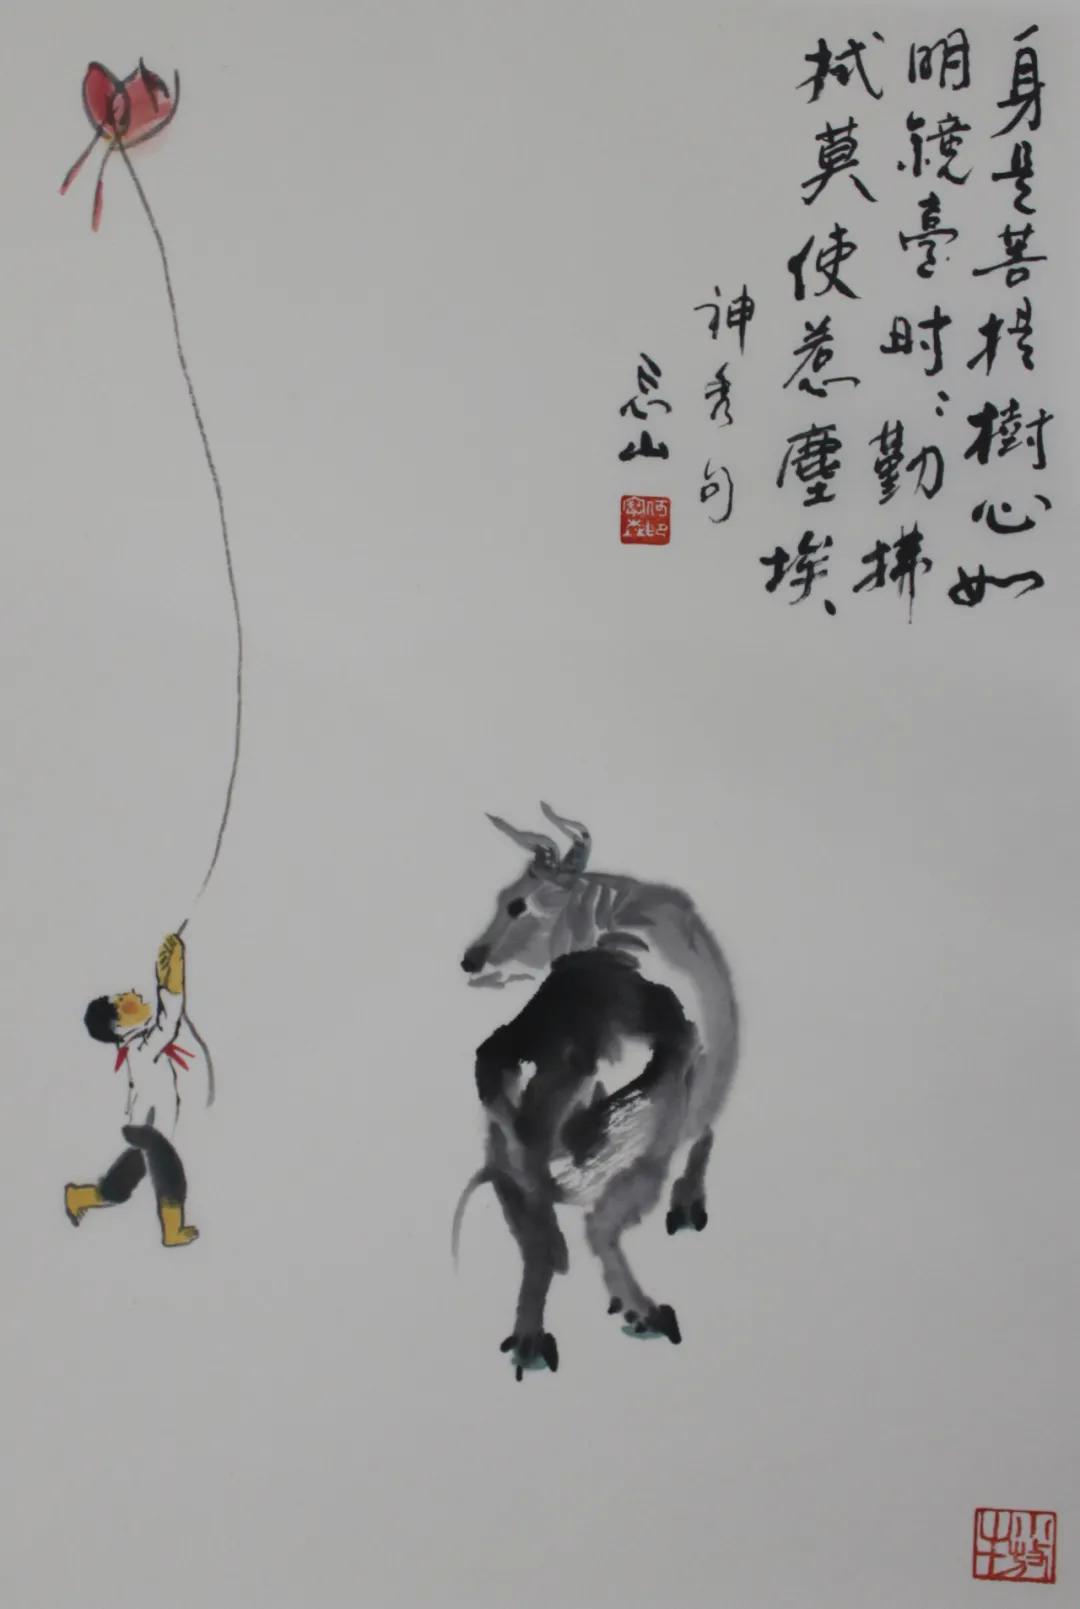 身是菩提樹心如
明鏡臺时〻勤拂
拭莫使惹塵埃
神秀句
山
小牧牛